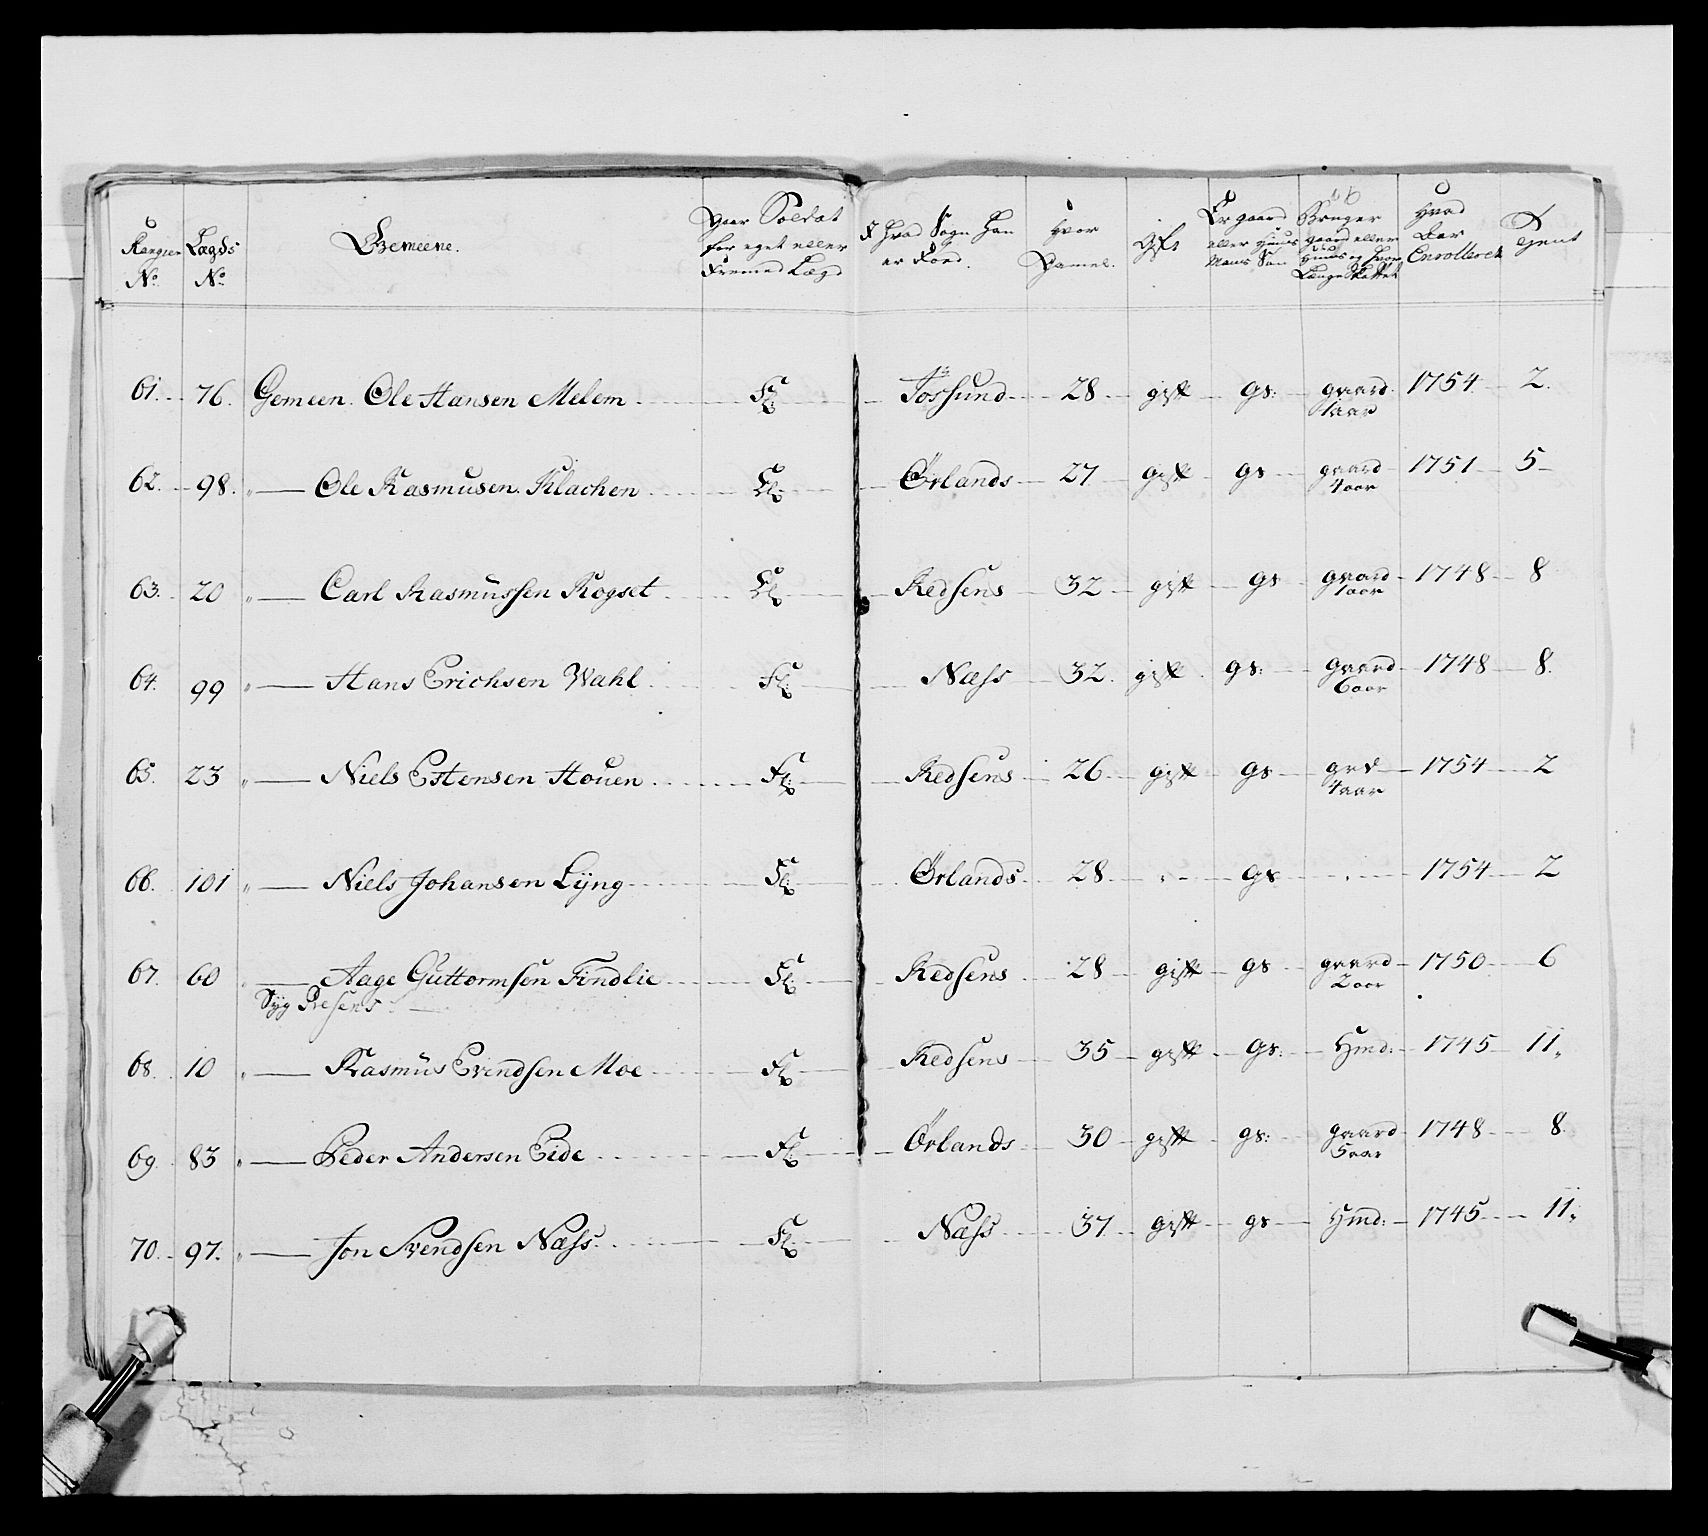 Rangier No | Lægds No | Gemeene. | Vaar Soldat for eget eller Fremed Læg | I hvad Sogn han er Föed. | Hvor Gamel. | Gift | Er gaard eller Huus Mans Søn | Bruger gaard eller Huus og hvor Længe Skattet | Hvad Aar Enrolleret | Tjent
61. | 76. | Gemeen. Ole Hansen Melem | Fl: | Fössund | 28 | gift | gs: | gaard 1 aar | 1754 | 2.
62. | 98. | " — Ole Rasmusen Klachen | El: | Örlands | 27 | gift | gs | gaard 4 aar | 1751 | 5
63. | 20 | " — Carl Rasmussen Kogset | El: | Redsens | 32 | gift | gs | gaard 1 aar | 1748 | 8
64. | 99 | " — Hans Erichsen Wahl | Fl: | Næss | 32. | gift | gs: | gaard 6 aar | 1748 | 8.
65. | 23 | " — Niels Estensen Houen | Fl: | Redsens | 26 | gift | gs | grd 4 aar | 1754 | 2
66. | 101 | " — Niels Johansen Lÿng | Fl: | Örlands | 28 | " | gs | " | 1754 | 2
67. | 60 | " — Aage Guttormsen Findlie | Fl: | Redsens | 28 | gift | gs | gaard 2 aar | 1750 | 6
Syg Presens
68. | 10 | " — Rasmus Evendsen Moe | Fl: | Redsens | 35 | gift | gs: | Hmd: | 1745 | 11"
69. | 83 | " — Peder Andersen Eide | Fl: | Örlands | 30 | gift | gs: | gaard 5 aar | 1748 | 8
70. | 97. | " — Jon Svendsen Næss. | Fl: | Næss | 37 | gift | gs | Hmd: | 1745 | 11"